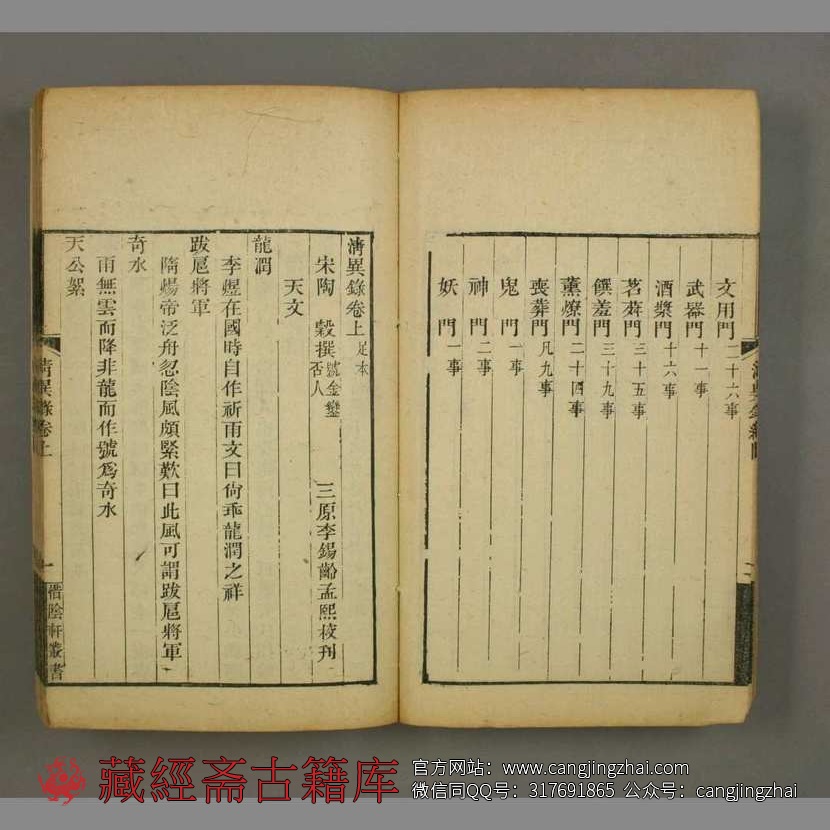 文用門二十六事
武器門十一事
酒漿門十六事
茗荈門三十五事
饌羞門三十九事
薰燎門二十四事
喪葬門凡九事
鬼門一事
神門二事
妖門一事
二
清異錄卷上足本
宋陶穀撰號金鑾否人 三原李錫齡孟熙校刋
天文
龍潤
李煜在國時自作祈雨文曰尙乖龍潤之祥
跋扈將軍
隋煬帝泛舟忽陰風頗緊歎曰此風可謂跋扈將軍
奇水
雨無雲而降非龍而作號爲奇水
天公絮
清異錄卷上
一
惜陰軒叢書
藏經斋古籍库
官方网站：www.cangjingzhai.com
微信同QQ号：317691865 公众号：cangjingzhai